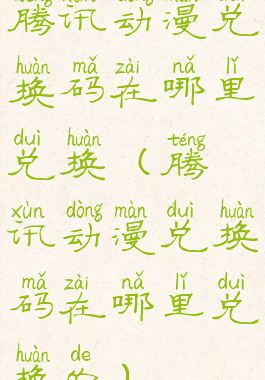 téng xùn dòng màn duì
腾讯动漫兑
huàn mǎ zài nǎ lǐ
换码在哪里
duì huàn téng
兑换（腾
xùn dòng màn duì huàn
讯动漫兑换
mǎ zài nǎ lǐ duì
码在哪里兑
huàn de
换的）